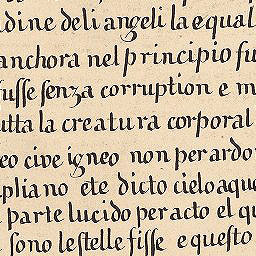 dine deli angeli la equal
anchora nel principio fu
fusse senza corruption e m
utta la creatura corporal
eo cive igneo non per ardo
pliano ete dicto cielo aque
parte lucido per acto el qu
sono le stelle fisse e questo